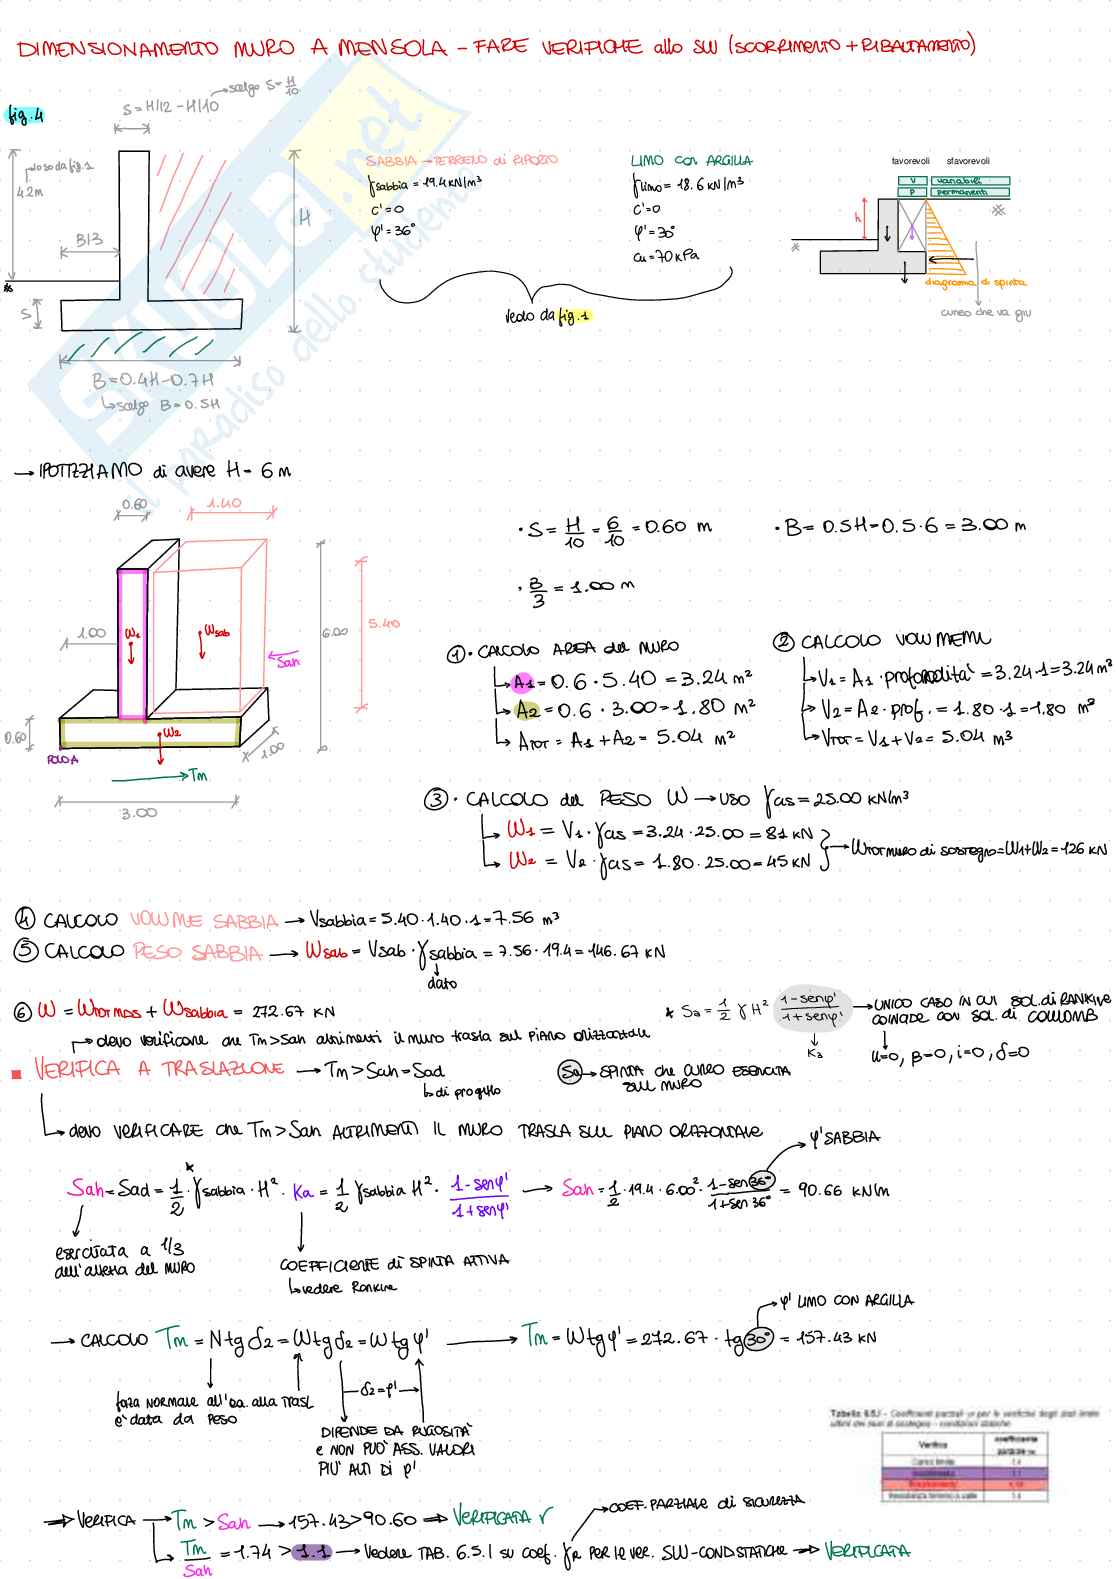 DIMENSIONAMENTO MURO A MENSOLA - FARE VERIFICHE allo SLU (SCORRIMENTO + RIBALTAMENTO)
fig.4
S = H/12 - H/10 → scelgo S = H/10
→ loso da fig.1
4.2m
B/3
H
S
B = 0.4H - 0.7H
↳ scelgo B = 0.5H
SABBIA → TERRENO di RIPORTO
γsabbia = 19.4 kN/m³
c' = 0
φ' = 36°
LIMO con ARGILLA
γlimo = 18.6 kN/m³
c' = 0
φ' = 30°
cu = 70 kPa
vedo da fig.1
favorevoli sfavorevoli
V variabili
P permanenti
h
diagramma di spinta
cuneo che va giù
→ IPOTIZZIAMO di avere H = 6 m
0.60
1.40
1.00
W1
Wsab
Sah
6.00
5.40
0.60
W2
POLO A
1.00
→ Tm
3.00
· S = H/10 = 6/10 = 0.60 m
· B = 0.5H = 0.5 · 6 = 3.00 m
· B/3 = 1.00 m
① · CALCOLO AREA del MURO
↳ A1 = 0.6 · 5.40 = 3.24 m²
↳ A2 = 0.6 · 3.00 = 1.80 m²
↳ ATOT = A1 + A2 = 5.04 m²
② CALCOLO VOLUMEMU
↳ V1 = A1 · profondità = 3.24 · 1 = 3.24 m³
↳ V2 = A2 · prof. = 1.80 · 1 = 1.80 m³
↳ VTOT = V1 + V2 = 5.04 m³
③ · CALCOLO del PESO W → USO γcls = 25.00 kN/m³
↳ W1 = V1 · γcls = 3.24 · 25.00 = 81 kN
↳ W2 = V2 · γcls = 1.80 · 25.00 = 45 kN
→ WTOT MURO di SOSTEGNO = W1 + W2 = 126 kN
④ CALCOLO VOLUME SABBIA → Vsabbia = 5.40 · 1.40 · 1 = 7.56 m³
⑤ CALCOLO PESO SABBIA → Wsab = Vsab · γsabbia = 7.56 · 19.4 = 146.67 kN
↓ dato
⑥ W = WTOTMDS + Wsabbia = 272.67 kN
→ devo verificare che Tm > Sah altrimenti il muro trasla sul piano orizzontale
* Sa = 1/2 γ H² (1 - senφ')/(1 + senφ') → UNICO CASO IN CUI SOL. di RANKINE
COINCIDE CON SOL. DI COULOMB
Ka
u=0, β=0, i=0, δ=0
VERIFICA A TRASLAZIONE → Tm > Sah = Sad
↳ di progetto
Sa → SPINTA che CUNEO ESERCITA
SUL MURO
↳ devo VERIFICARE che Tm > Sah ALTRIMENTI IL MURO TRASLA SUL PIANO ORIZZONTALE
φ' SABBIA
*
Sah = Sad = 1/2 · γsabbia · H² · Ka = 1/2 γsabbia H² · (1 - senφ')/(1 + senφ') → Sah = 1/2 · 19.4 · 6.00² · (1 - sen 36°)/(1 + sen 36°) = 90.66 kN/m
esercitata a 1/3
dell'altezza del MURO
COEFFICIENTE di SPINTA ATTIVA
↳ vedere Rankine
φ' LIMO CON ARGILLA
→ CALCOLO Tm = N tg δ2 = W tg δ2 = W tg φ' → Tm = W tg φ' = 272.67 · tg 30° = 157.43 kN
δ2 = φ'
forza NORMALE all'oa. alla TRASL
è data da PESO
DIPENDE DA RUGOSITÀ
e NON PUÒ ASS. VALORI
PIÙ ALTI DI φ'
Tabella 6.5.I - Coefficienti parziali γR per le verifiche degli stati limite
ultimi dei muri di sostegno - condizioni statiche
Verifica coefficiente
Carico limite 1.4
Scorrimento 1.1
Ribaltamento 1.15
Resistenza terreno a valle 1.4
⇒ VERIFICA → Tm > Sah → 157.43 > 90.60 ⇒ VERIFICATA √
→ COEF. PARZIALE di SICUREZZA
↳ Tm/Sah = 1.74 > 1.1 → Vedere TAB. 6.5.I su coef. γR PER le VER. SLU-COND STATICHE ⇒ VERIFICATA
SKUOLA.net
il paradiso dello studente